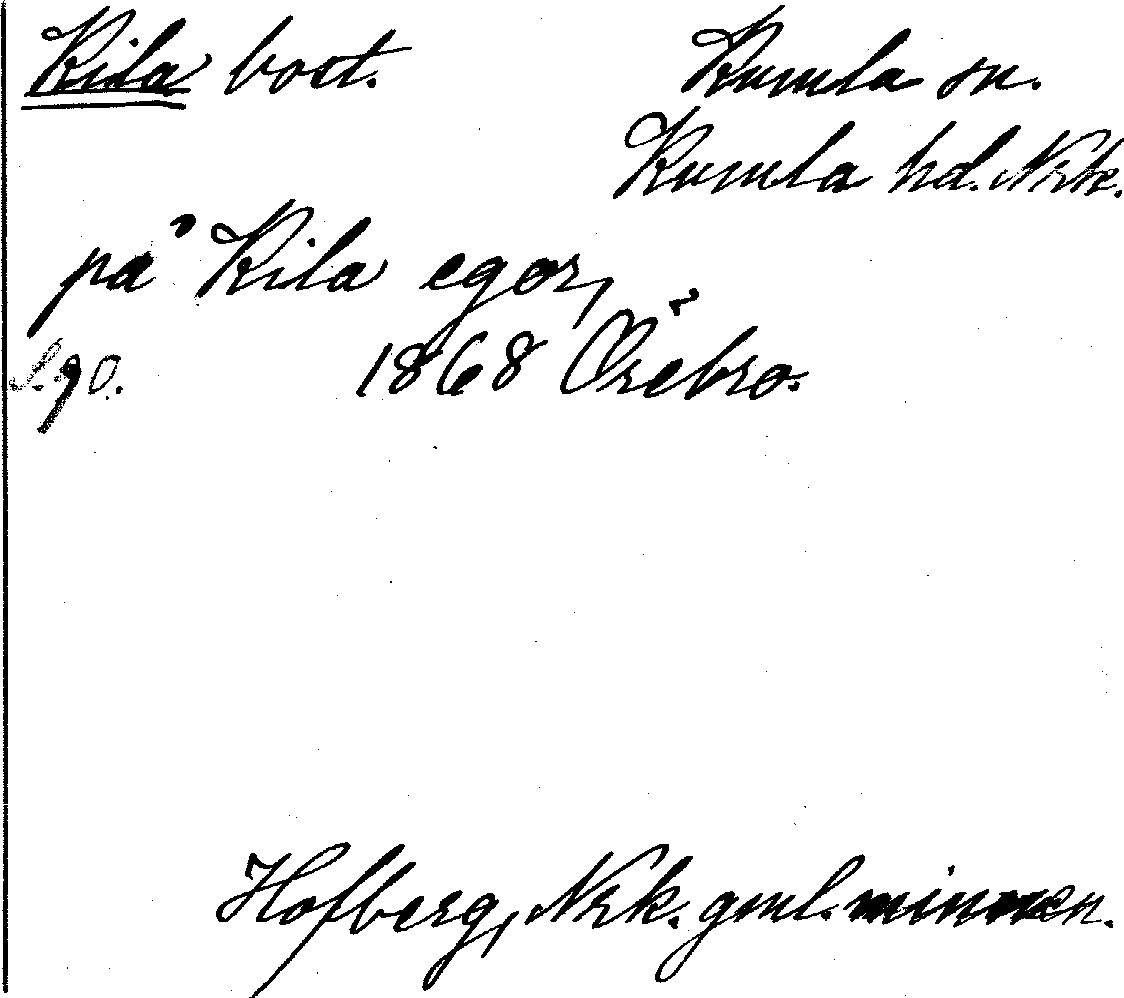 Kila bost. Kumla sn.
Kumla hd. Nrk.
på Kila egor,
S. 90. 1868 Örebro.
Hofberg, Nrk. gml. minnen.